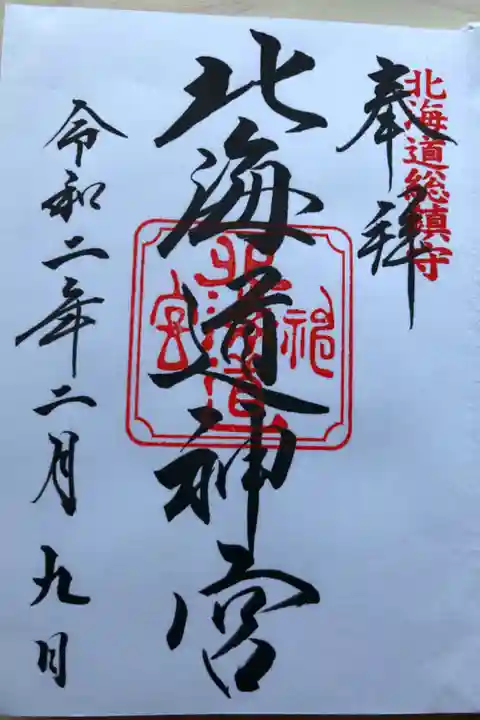 北海道総鎮守
奉拝
北海道神宮
令和二年二月九日